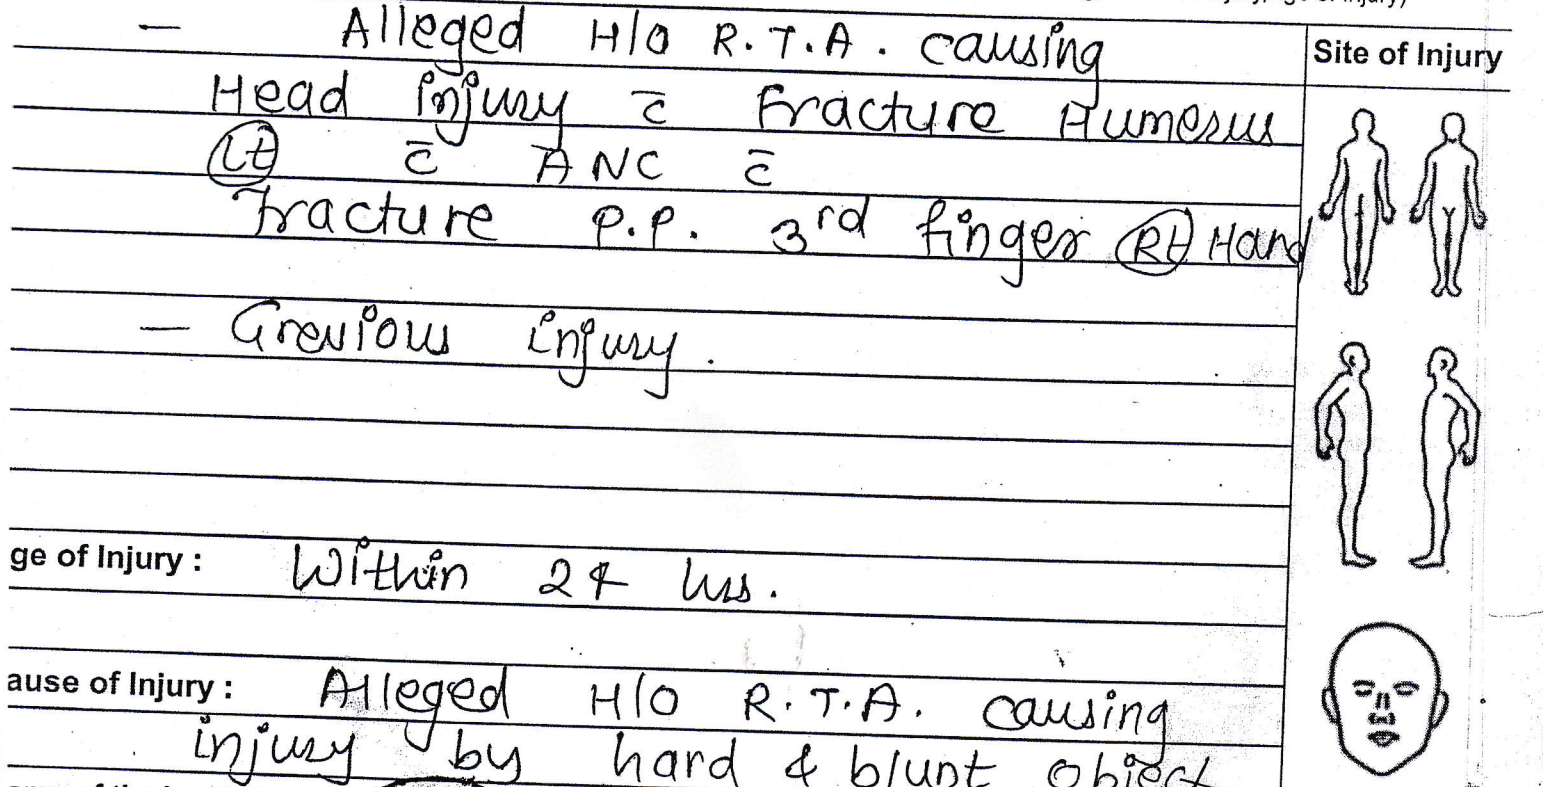 — Alleged H/O R.T.A. causing
Site of Injury
Head injury c̄ Fracture Humerus
Lt c̄ ANC c̄
Fracture P.P. 3rd finger Rt Hand
— Grevious injury.
ge of Injury : Within 24 hrs.
ause of Injury : Alleged H/O R.T.A. causing
injury by hard & blunt object